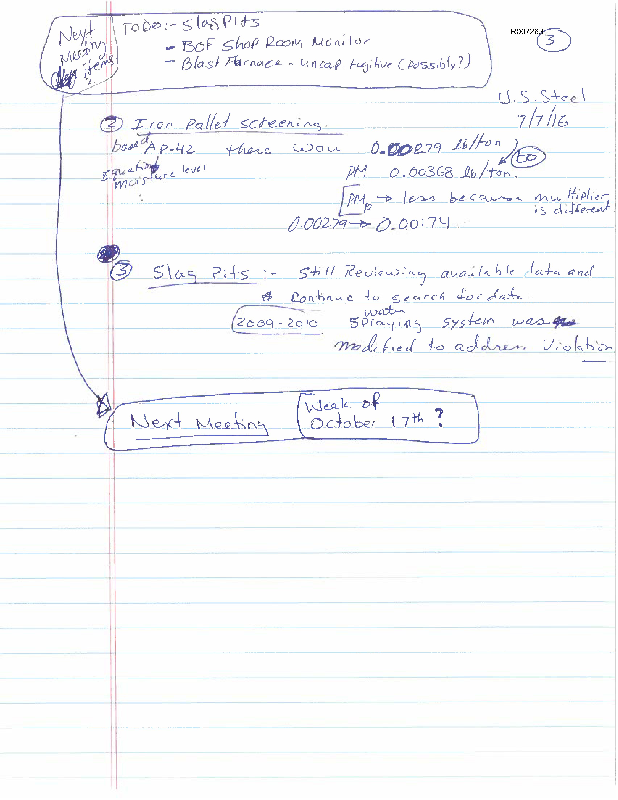 Next Meeting items
To Do:- Slag Pits
- BOF Shop Room Monitor
- Blast Furnace - uncap fugitive (possibly?)
3
U.S. Steel
7/7/16
② Iron Pallet screening.
based AP-42 there was 0.00279 lb/ton
Equation moisture level
to
PM 0.00368 lb/ton.
PM → less because multiplier is different
0.00279 → 0.00174
③ Slag Pits :- Still Reviewing available data and
* Continue to search for data
water
2009-2010 Spraying system was
modified to address Violation
Next Meeting
Week of
October 17th ?